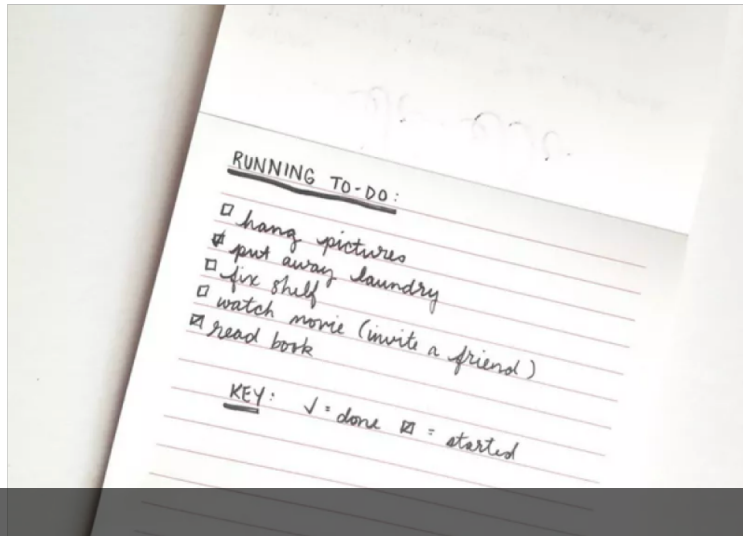 RUNNING TO-DO:
☐ hang pictures
☑ put away laundry
☐ fix shelf
☐ watch movie (invite a friend)
⍁ read book
KEY: ✓ = done ⍁ = started